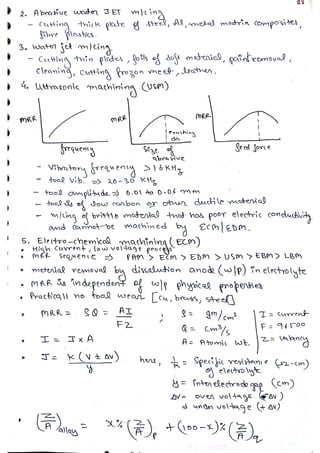 2. Abrasive water JET m/cing
- Cutting thick plate of steel, Al, metal matrix composites,
fibre plastics.
3. water jet m/cing
- Cutting thin plates, foils of soft material, paint removal,
cleaning, cutting frozen meet, leather.
4. Ultrasonic machining (USM)
MRR MRR MRR
frequency Size of abrasive feed force
- Vibratory frequency > 16 KHz
- tool vib. => 20-30 KHz
- tool amplitude => 0.01 to 0.06 mm
- tool is of low carbon or other ductile material
- m/cing of brittle material that has poor electric conductivity
and cannot be machined by ECM/EDM.
5. Electro-chemical machining (ECM)
• High Current, low voltage process
• MRR SEQUENCE => PAM > ECM > EDM > USM > EBM > LBM
• material removal by dissolution anode (w/p) in electrolyte
• MRR is independent of w/p physical properties
• Practicall no tool wear [Cu, brass, steel]
• MRR = SQ = AI / FZ ; S = gm/cm³ I = current
Q = cm³/s F = 96500
A = Atomic wt. Z = valency
• I = J x A
• J = K (V ± ΔV) / y here, 1/K = Specific resistance (Ω-cm)
of electrolyte
y = Inter electrode gap (cm)
ΔV = over voltage (-ΔV)
undr voltage (+ΔV)
• (Z/A) alloy = x% (Z/A)p + (100-x)% (Z/A)q